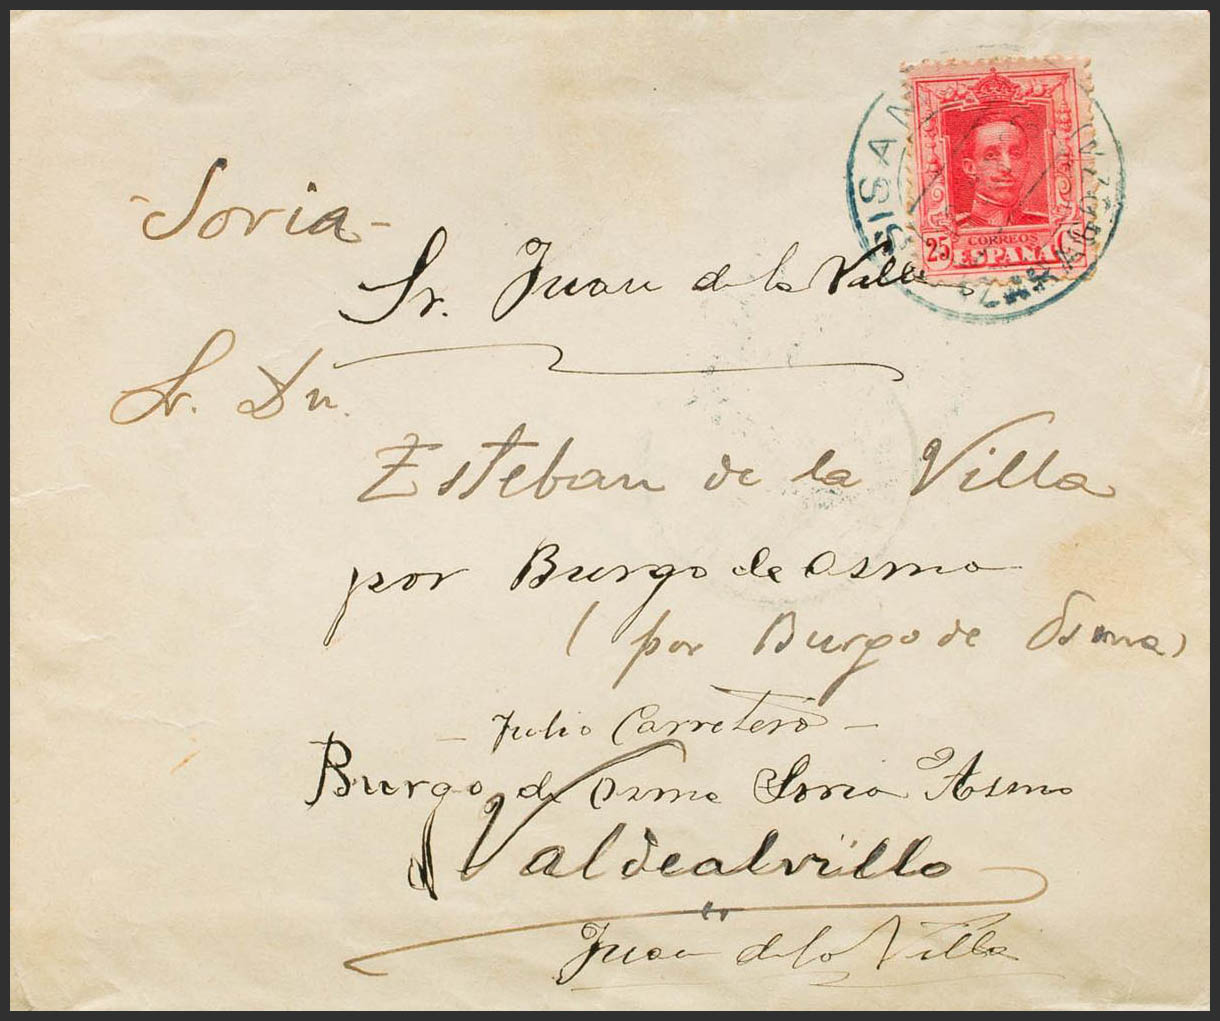 SISAMÓN
ZARAGOZA
25 CORREOS
ESPAÑA
- Soria -
Sr. Juan de la Valle
Sr. Dn.
Esteban de la Villa
por Burgo de Osma
( por Burgo de Osma )
- Julio Carretero -
Burgo de Osma Soria Osma
Valdealvillo
Juan de la Villa